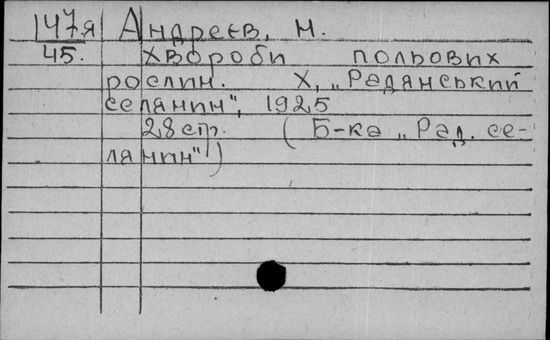 147я Андреєв, М.
45. Хвороби польових
рослин. Х, „Радянський
селянин", 1925
28 ст. (Б-ка „Рад. се-
лянин")